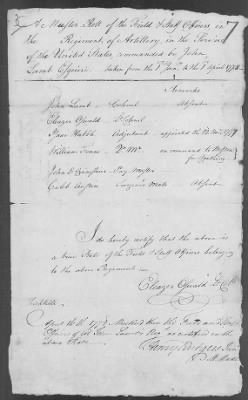 A Muster Roll of the Field & Staff Officers in
the Regiment of Artillery, in the Service
of the United States commanded by John
Lamb Esquire taken from the 1st Jany to the 1st April 1778
Remarks
John Lamb Colonel Absent
Eleazer Oswald Lt Colonel
Isaac Hubbell Adjutant appointed the
William Qr Mr on command to Boston for Cloathing
John Pay Master
Caleb Austin Surgeons Mate Absent
I do hereby certify that the above is
a true State of the Field & Staff Officers belonging
to the above Regiment
Eleazer Oswald Lt Col
Fishkill
April 1778 Mustered then the Field and Staff
Officers of Col John Lamb's Reg as certified in the
above Roll